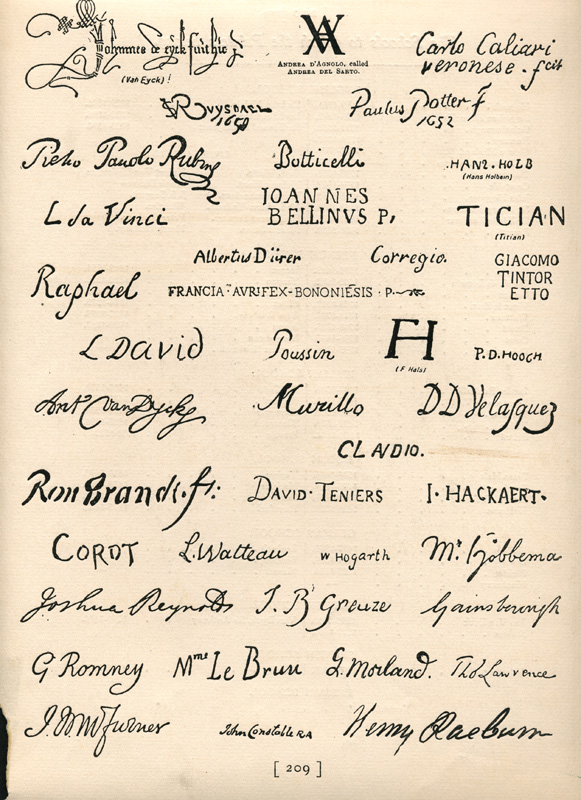 Johannes de eyck fuit hic
(Van Eyck)
VA
ANDREA D'AGNOLO, called
ANDREA DEL SARTO.
Carlo Caliari
veronese. fcit
RUYSDAEL
Paulus Potter f
1652
Pietro Pauolo Rubens
Botticelli
HANS. HOLB
(Hans Holbein)
L da Vinci
IOANNES
BELLINVS P,
TICIAN
(Titian)
Albertus Dürer
Corregio.
GIACOMO
TINTOR
ETTO
Raphael
FRANCIA AVRIFEX-BONONIĒSIS P.
L David
Poussin
FH
(F Hals)
P. D. HOOCH
Ant° Van Dyck
Murillo
D D Velasquez
CLAVDIO.
Rembrandt. f:
DAVID·TENIERS
I·HACKAERT·
COROT
L. Watteau
W HOGARTH
Mr. Hobbema
Joshua Reynolds
J. B Greuze
Gainsborough
G Romney
Mme Le Brun
G. Morland.
Tho Lawrence
J. M W Turner
John Constable RA
Henry Raeburn
[ 209 ]